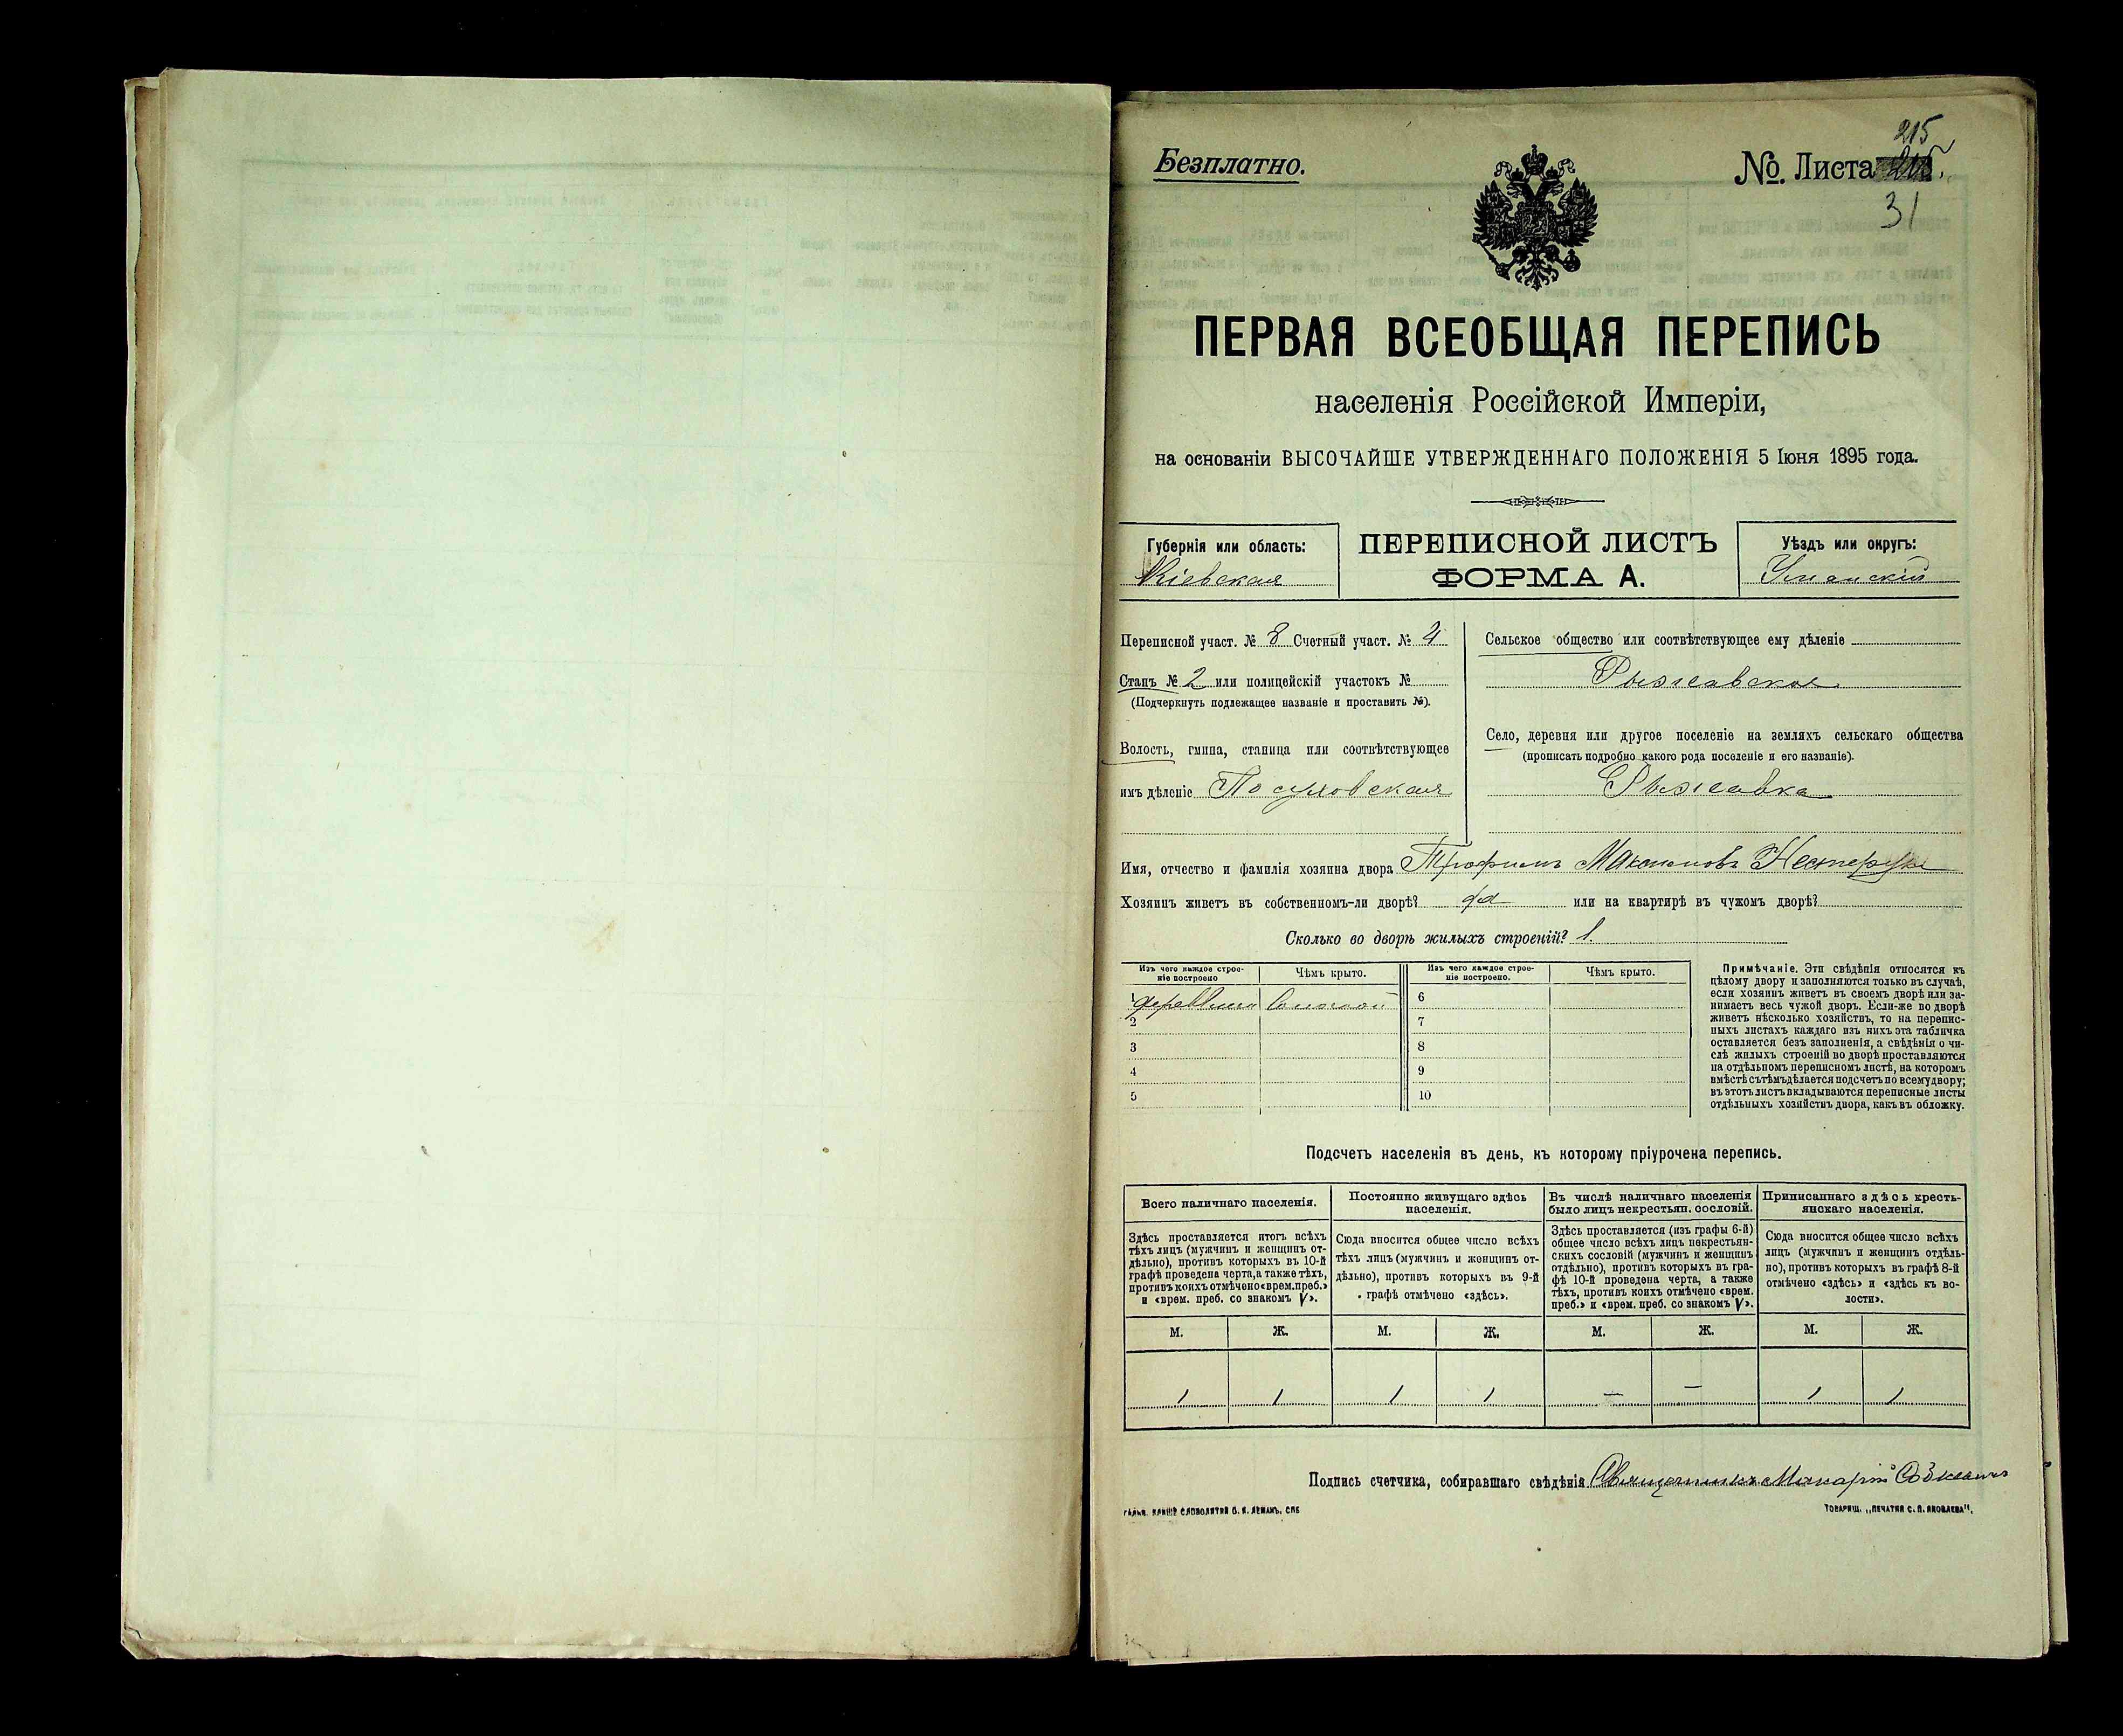 Безплатно.
215
№ Листа 215.
31
ПЕРВАЯ ВСЕОБЩАЯ ПЕРЕПИСЬ
населенія Россійской Имперіи,
на основаніи ВЫСОЧАЙШЕ УТВЕРЖДЕННАГО ПОЛОЖЕНІЯ 5 Іюня 1895 года.
Губернія или область:
Кіевская
ПЕРЕПИСНОЙ ЛИСТЪ
ФОРМА А.
Уѣздъ или округъ:
Уманскій
Переписной участ. № 8 Счетный участ. № 4
Станъ № 2 или полицейскій участокъ №
(Подчеркнуть подлежащее названіе и проставить №).
Волость, гмина, станица или соотвѣтствующее
имъ дѣленіе Посуховская
Сельское общество или соотвѣтствующее ему дѣленіе
Рыжавское
Село, деревня или другое поселеніе на земляхъ сельскаго общества
(прописать подробно какого рода поселеніе и его названіе).
Рыжавка
Имя, отчество и фамилія хозяина двора Трофимъ Максимовъ Нестерукъ
Хозяинъ живетъ въ собственномъ-ли дворѣ? да или на квартирѣ въ чужомъ дворѣ?
Сколько во дворѣ жилыхъ строеній? 1.
Изъ чего каждое строе-
ніе построено
Чѣмъ крыто.
Изъ чего каждое строе-
ніе построено.
Чѣмъ крыто.
1 Соломой 6
2 7
3 8
4 9
5 10
Примѣчаніе. Эти свѣдѣнія относятся къ
цѣлому двору и заполняются только въ случаѣ,
если хозяинъ живетъ въ своемъ дворѣ или за-
нимаетъ весь чужой дворъ. Если-же во дворѣ
живетъ нѣсколько хозяйствъ, то на перепис-
ныхъ листахъ каждаго изъ нихъ эта табличка
оставляется безъ заполненія, а свѣдѣнія о чи-
слѣ жилыхъ строеній во дворѣ проставляются
на отдѣльномъ переписномъ листѣ, на которомъ
вмѣстѣ съ тѣмъ дѣлается подсчетъ по всему двору;
въ этотъ листъ вкладываются переписные листы
отдѣльныхъ хозяйствъ двора, какъ въ обложку.
Подсчетъ населенія въ день, къ которому пріурочена перепись.
Всего наличнаго населенія.
Здѣсь проставляется итогъ всѣхъ
тѣхъ лицъ (мужчинъ и женщинъ от-
дѣльно), противъ которыхъ въ 10-й
графѣ проведена черта, а также тѣхъ,
противъ коихъ отмѣчено «врем. преб.»
и «врем. преб. со знакомъ V».
Постоянно живущаго здѣсь
населенія.
Сюда вносится общее число всѣхъ
тѣхъ лицъ (мужчинъ и женщинъ от-
дѣльно), противъ которыхъ въ 9-й
графѣ отмѣчено «здѣсь».
Въ числѣ наличнаго населенія
было лицъ некрестьян. сословій.
Здѣсь проставляется (изъ графы 6-й)
общее число всѣхъ лицъ некрестьян-
скихъ сословій (мужчинъ и женщинъ
отдѣльно), противъ которыхъ въ гра-
фѣ 10-й проведена черта, а также
тѣхъ, противъ коихъ отмѣчено «врем.
преб.» и «врем. преб. со знакомъ V».
Приписаннаго здѣсь кресть-
янскаго населенія.
Сюда вносится общее число всѣхъ
лицъ (мужчинъ и женщинъ отдѣль-
но), противъ которыхъ въ графѣ 8-й
отмѣчено «здѣсь» и «здѣсь къ во-
лости».
М. Ж. М. Ж. М. Ж. М. Ж.
1 1 1 1 — — 1 1
Подпись счетчика, собиравшаго свѣдѣнія Священникъ Макарій
ТОВАРИЩ. „ПЕЧАТНЯ С. П. ЯКОВЛЕВА".